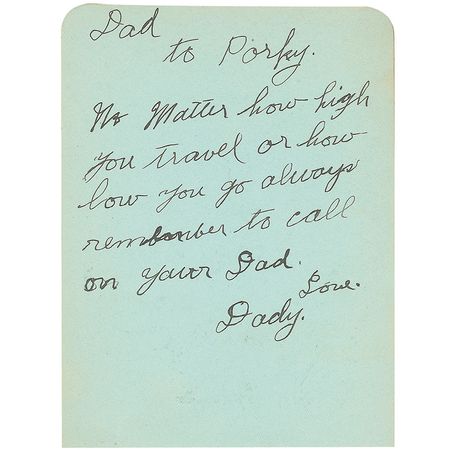 Dad
to Porky.
No Matter how high
you travel or how
low you go always
remember to call
on your Dad.
Love.
Dady.